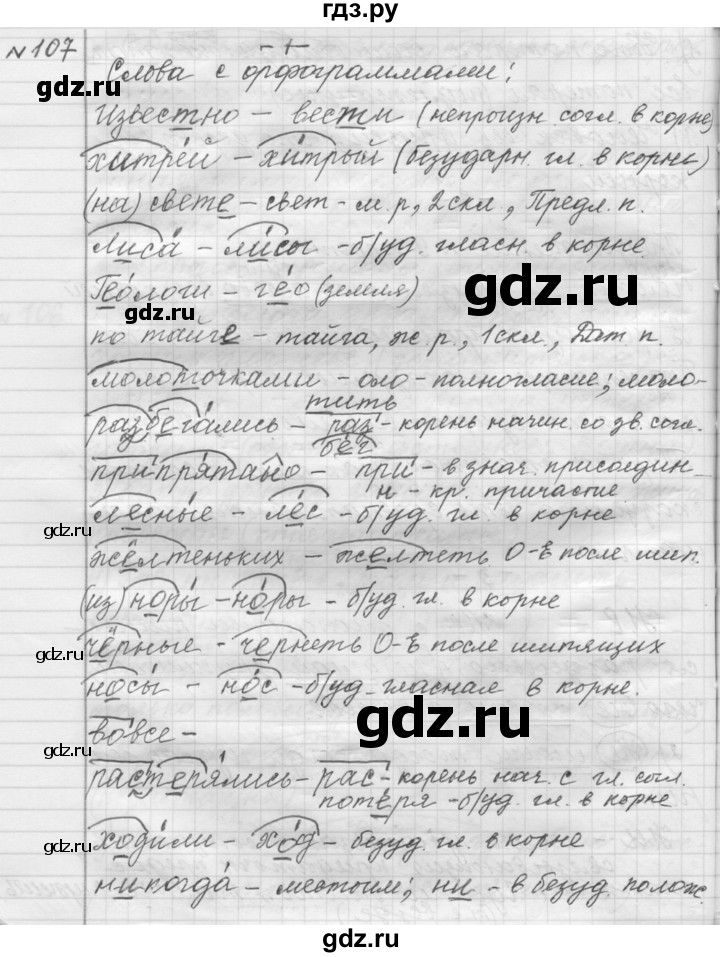 гдз.ру
№107
Слова с орфограммами:
Известно – вести (непроизн. согл. в корне)
хитрей – хитрый (безударн. гл. в корне)
(на) свете – свет – м.р., 2скл., Предл. п.
Лиса – лисы – б/уд. гласн. в корне
Геологи – гео (земля)
по тайге – тайга, ж.р., 1скл., Дат п.
молоточками – оло – полногласие; моло-
тить
разбегались – раз – корень начин. со зв. согл.
бег
припрятано – при – в знач. присоедин
н – кр. причастие
лесные – лес – б/уд. гл. в корне
жёлтеньких – желтеть О-Ё после шип.
(из) норы – норы – б/уд. гл. в корне
чёрные – чернеть О-Ё после шипящих
носы – нос – б/уд. гласная в корне.
вовсе –
растерялись – рас – корень нач. с гл. согл.
потеря – б/уд. гл. в корне
ходили – ход – безуд. гл. в корне –
никогда – местоим; ни – в безуд. полож.
gdz.ru
gdz.ru
gdz.ru
gdz.ru
gdz.ru
gdz.ru
gdz.ru
gdz.ru
gdz.ru
гдз.ру